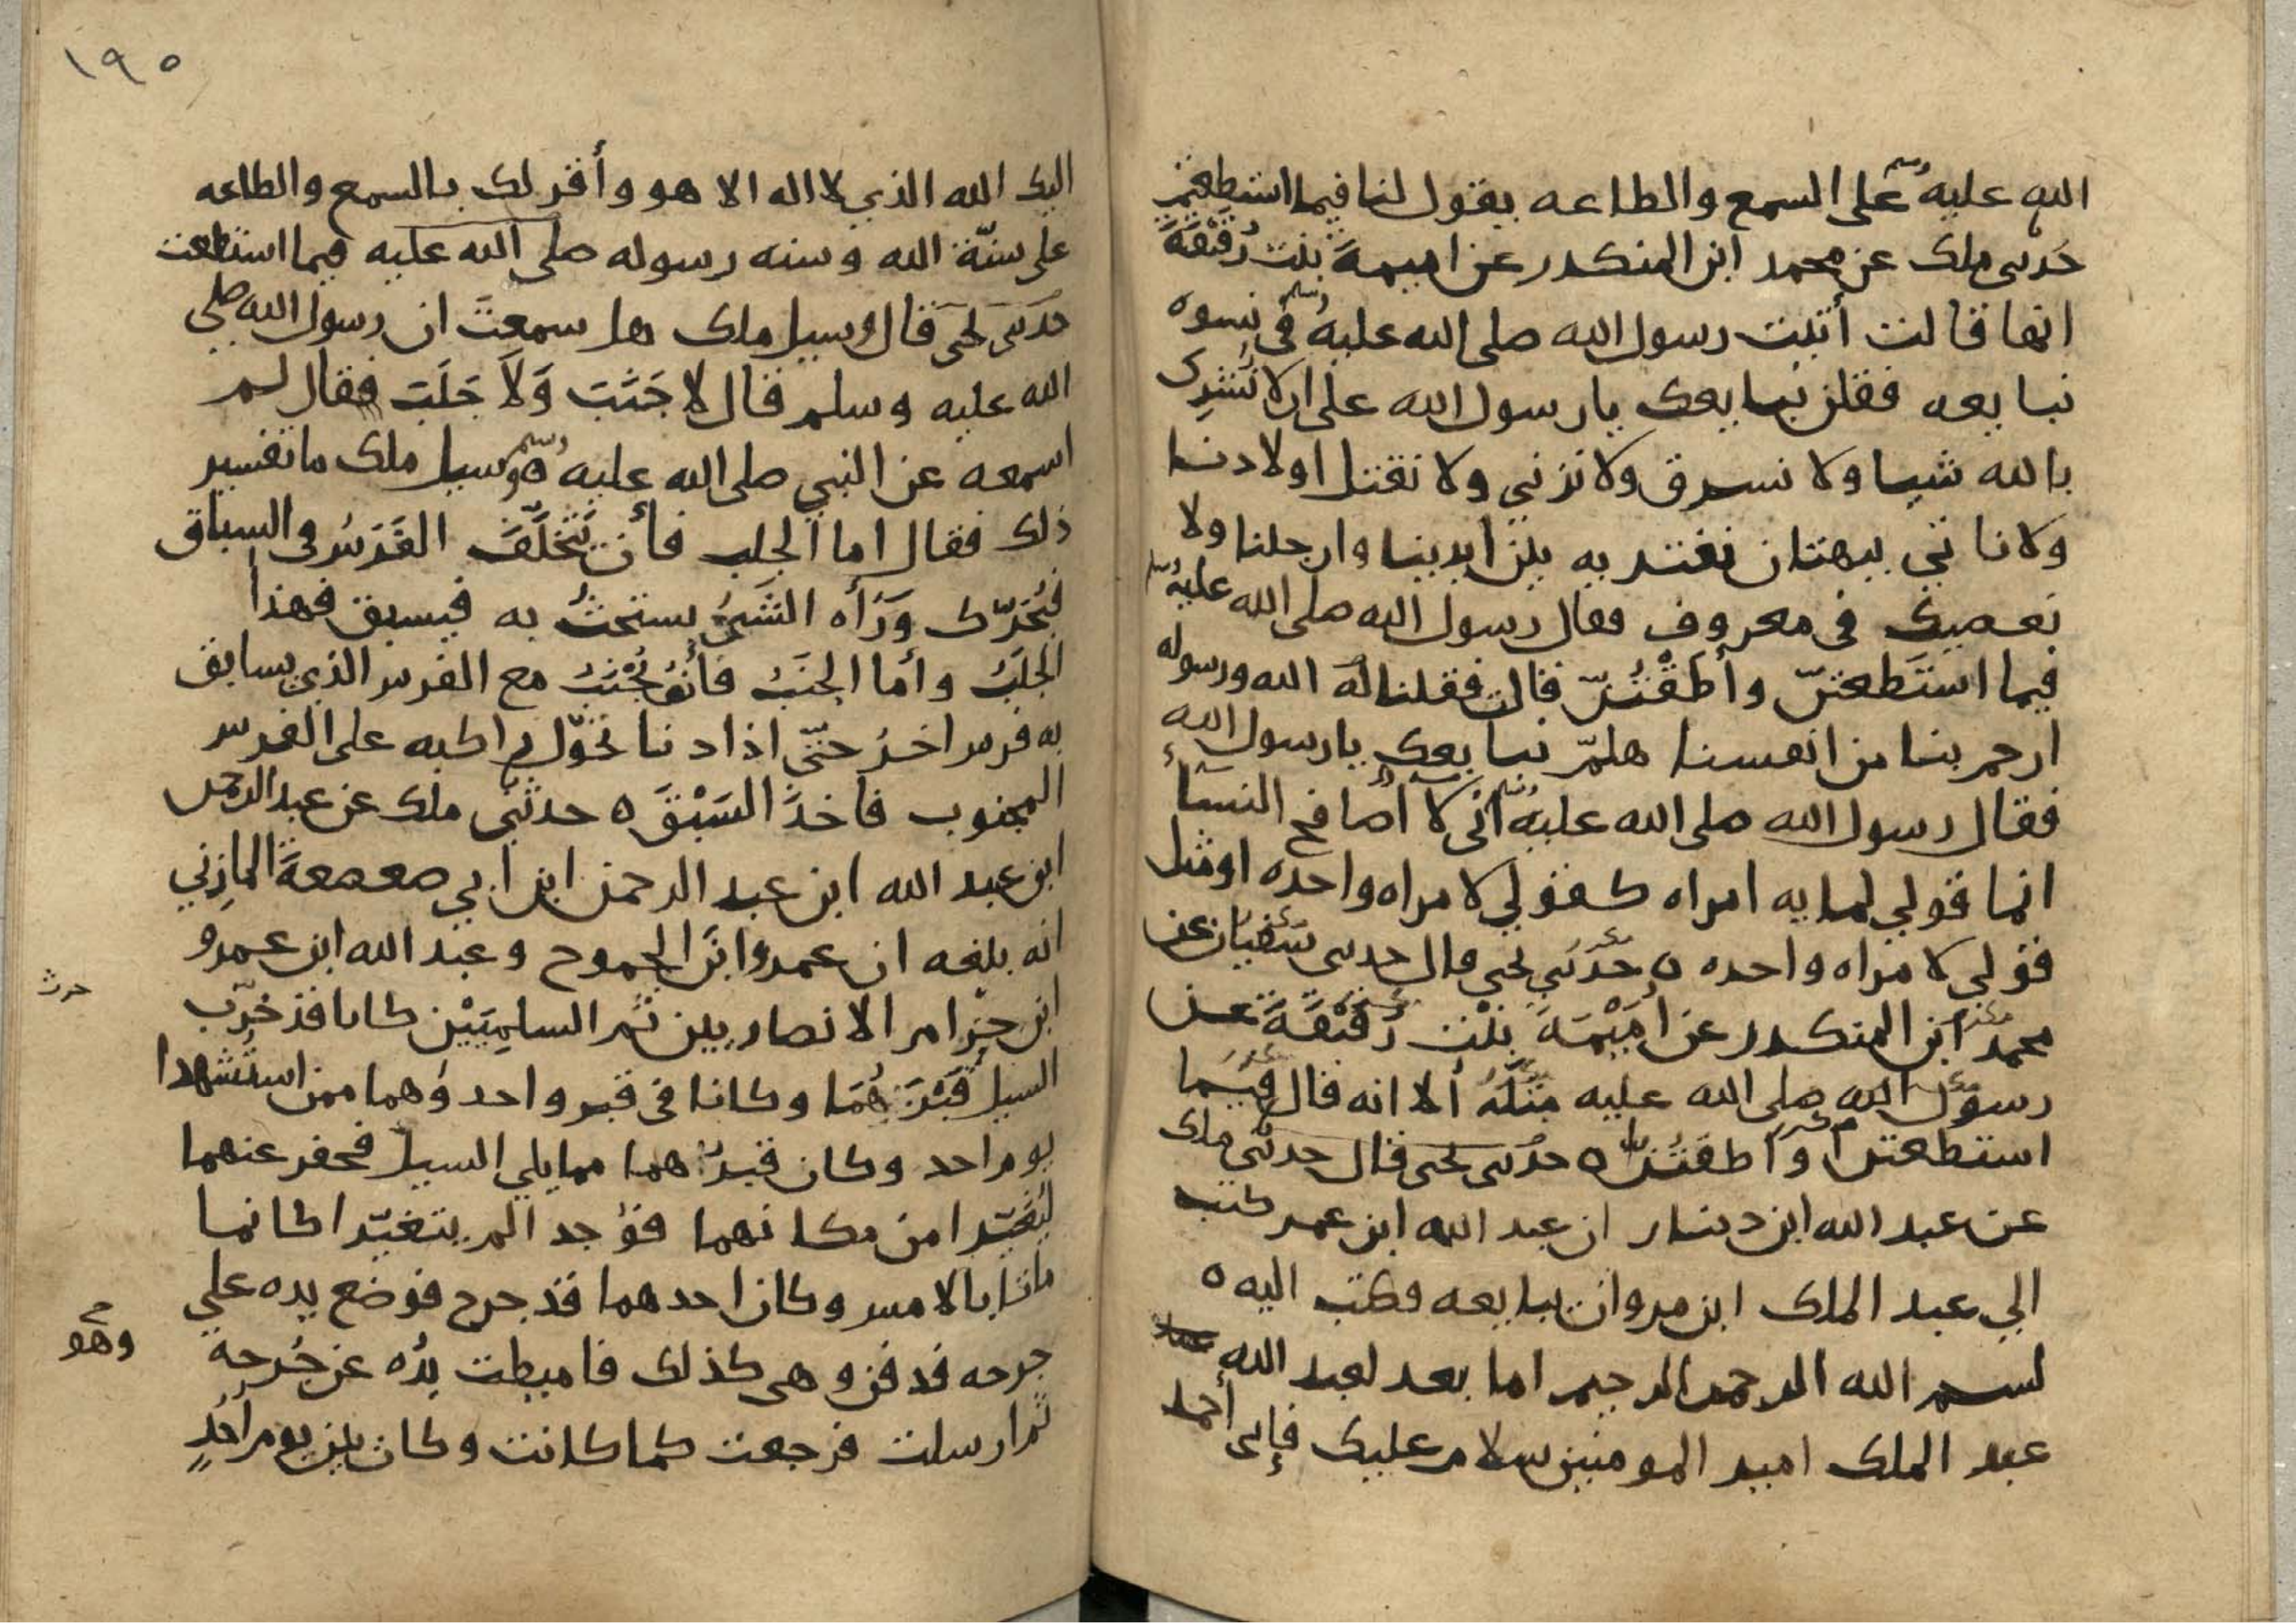 الله عليه وسلم على السمع والطاعه يقول لنا فيما استطعتم
حدثني ملك عن محمد ابن المنكدر عن اميمة بنت رُقَيْقَةَ
انها قالت أتيت رسول الله صلى الله عليه وسلم في نسوه
نبايعه فقلن نبايعك يا رسول الله على ان لا نُشرِك
بالله شيا ولا نسرق ولا نزني ولا نقتل اولادنا
ولا ناتي ببهتان نفتريه بين ايدينا وارجلنا ولا
نعصيك في معروف فقال رسول الله صلى الله عليه وسلم
فيما استَطعتنّ وأطَقْتُنّ قالت فقلنا لله الله ورسوله
ارحم بنا من انفسنا هلمّ نبايعك يا رسول الله
فقال رسول الله صلى الله عليه وسلم اني لا أصافح النساء
انما قولي لمايه امراه كقولي لامراه واحده او مثل
قولي لامراه واحده ه حَدثني يحيى قال حدثني سفيان عن
محمد ابن المنكدر عن أمَيْمَةَ بنْت رُقَيْقَةَ عن
رسول الله صلى الله عليه مثلَهُ ألا انه قال فيما
استطعتن وأطقتُنّ ه حدثني يحيى قال حدثني ملك
عن عبد الله ابن دينار ان عبد الله ابن عمر كتب
الي عبد الملك ابن مروان يبايعه فكتب اليه ه
بسم الله الرحمن الرحيم اما بعد لعبد الله
عبد الملك امير المومنين سلام عليك فإني أحمد
١٩٥
اليك الله الذي لا اله الا هو وأقر لك بالسمع والطاعه
على سنّة الله وسنه رسوله صلى الله عليه فيما استطعت
حدثني يحيى قال وسيل ملك هل سمعتَ ان رسول الله صلى
الله عليه وسلم قال لا جَنَبَ وَلاَ جَلَبَ فقال لم
اسمعه عن النبي صلى الله عليه وسلم ه وسيل ملك ما تفسير
ذلك فقال اما الجلب فأن يَتَخَلَّفَ الفَرَسُ في السباق
فيُحَرّك وَرَأه الشَيُ يستحثُ به فيسبق فهذا
الجلَبُ وأما الجنَبُ فأنهُ يُجْنَبُ مع الفرس الذي يسابق
به فرس اخرُ حتّى اذا دنا تحوّل راكبه على الفرس
المجنوب فاخذَ السَبْقَ ه حدثني ملك عن عبد الرحمن
ابن عبد الله ابن عبد الرحمن ابن ابي صعصعةَ المازِني
انه بلغه ان عمرو ابنَ الجموح وعبد الله ابن عمرو
ابن حِزام الانصاريين ثم السلمِيَيْن كانا قد خرّب
السيلُ قبْرَهُمَا وكانا في قبر واحد وُهما ممن استُشهدا
يوم احد وكان قبرُهما مما يلي السيل فحفر عنهما
ليُغَيّرا من مكانهما فوُجدا لم يتغيّرا كانما
ماتا بالامس وكان احدهما قد جرح فوضع يده علي
جرحه فدفن وهي كذلك فاميطت يدُه عن جُرحهِ
ثم ارسلت فرجعت كما كانت وكان بين يوم أحُدٍ
حرث
وهو